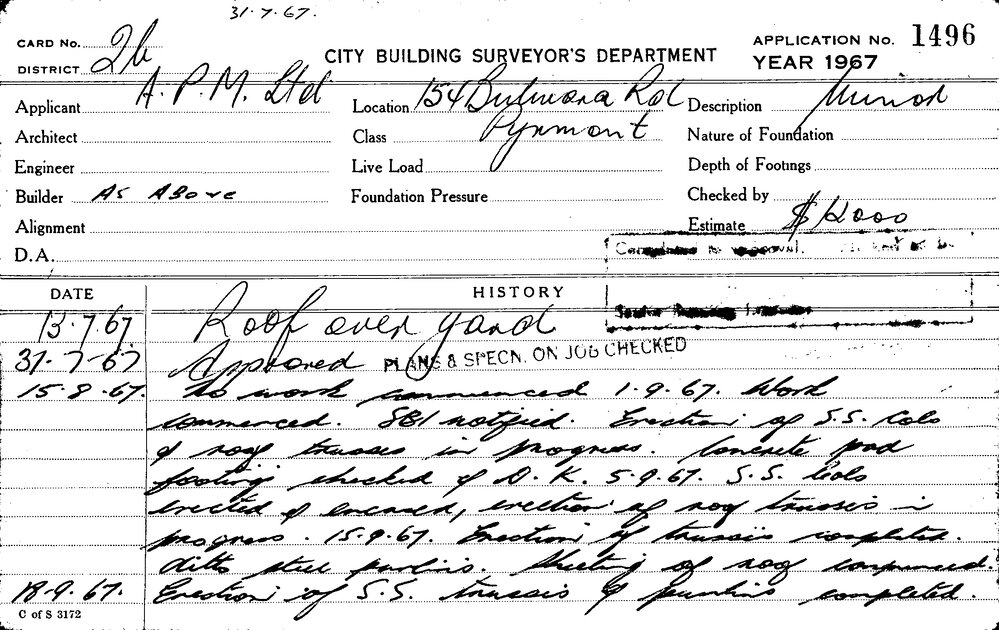 31.7.67.
CARD No. 26
DISTRICT
CITY BUILDING SURVEYOR'S DEPARTMENT
APPLICATION No. 1496
YEAR 1967
Applicant A. P. M. Ltd
Location 154 Bulwara Rd
Description Minor
Architect
Class Pyrmont
Nature of Foundation
Engineer
Live Load
Depth of Footings
Builder As Above
Foundation Pressure
Checked by
Alignment
Estimate $12000
D.A.
DATE HISTORY
13.7.67. Roof over yard
31-7-67 Approved PLANS & SPECN. ON JOB CHECKED
15.8.67. No work commenced 1.9.67. Work
commenced. SBI notified. Erection of S.S. Cols
& roof trusses in progress. Concrete pad
footing checked & O.K. 5.9.67. S.S. Cols
erected & encased, erection of roof trusses in
progress. 15.9.67. Erection of trusses completed.
ditto steel purlins. Sheeting of roof commenced.
18.9.67. Erection of S.S. trusses & purlins completed.
C of S 3172